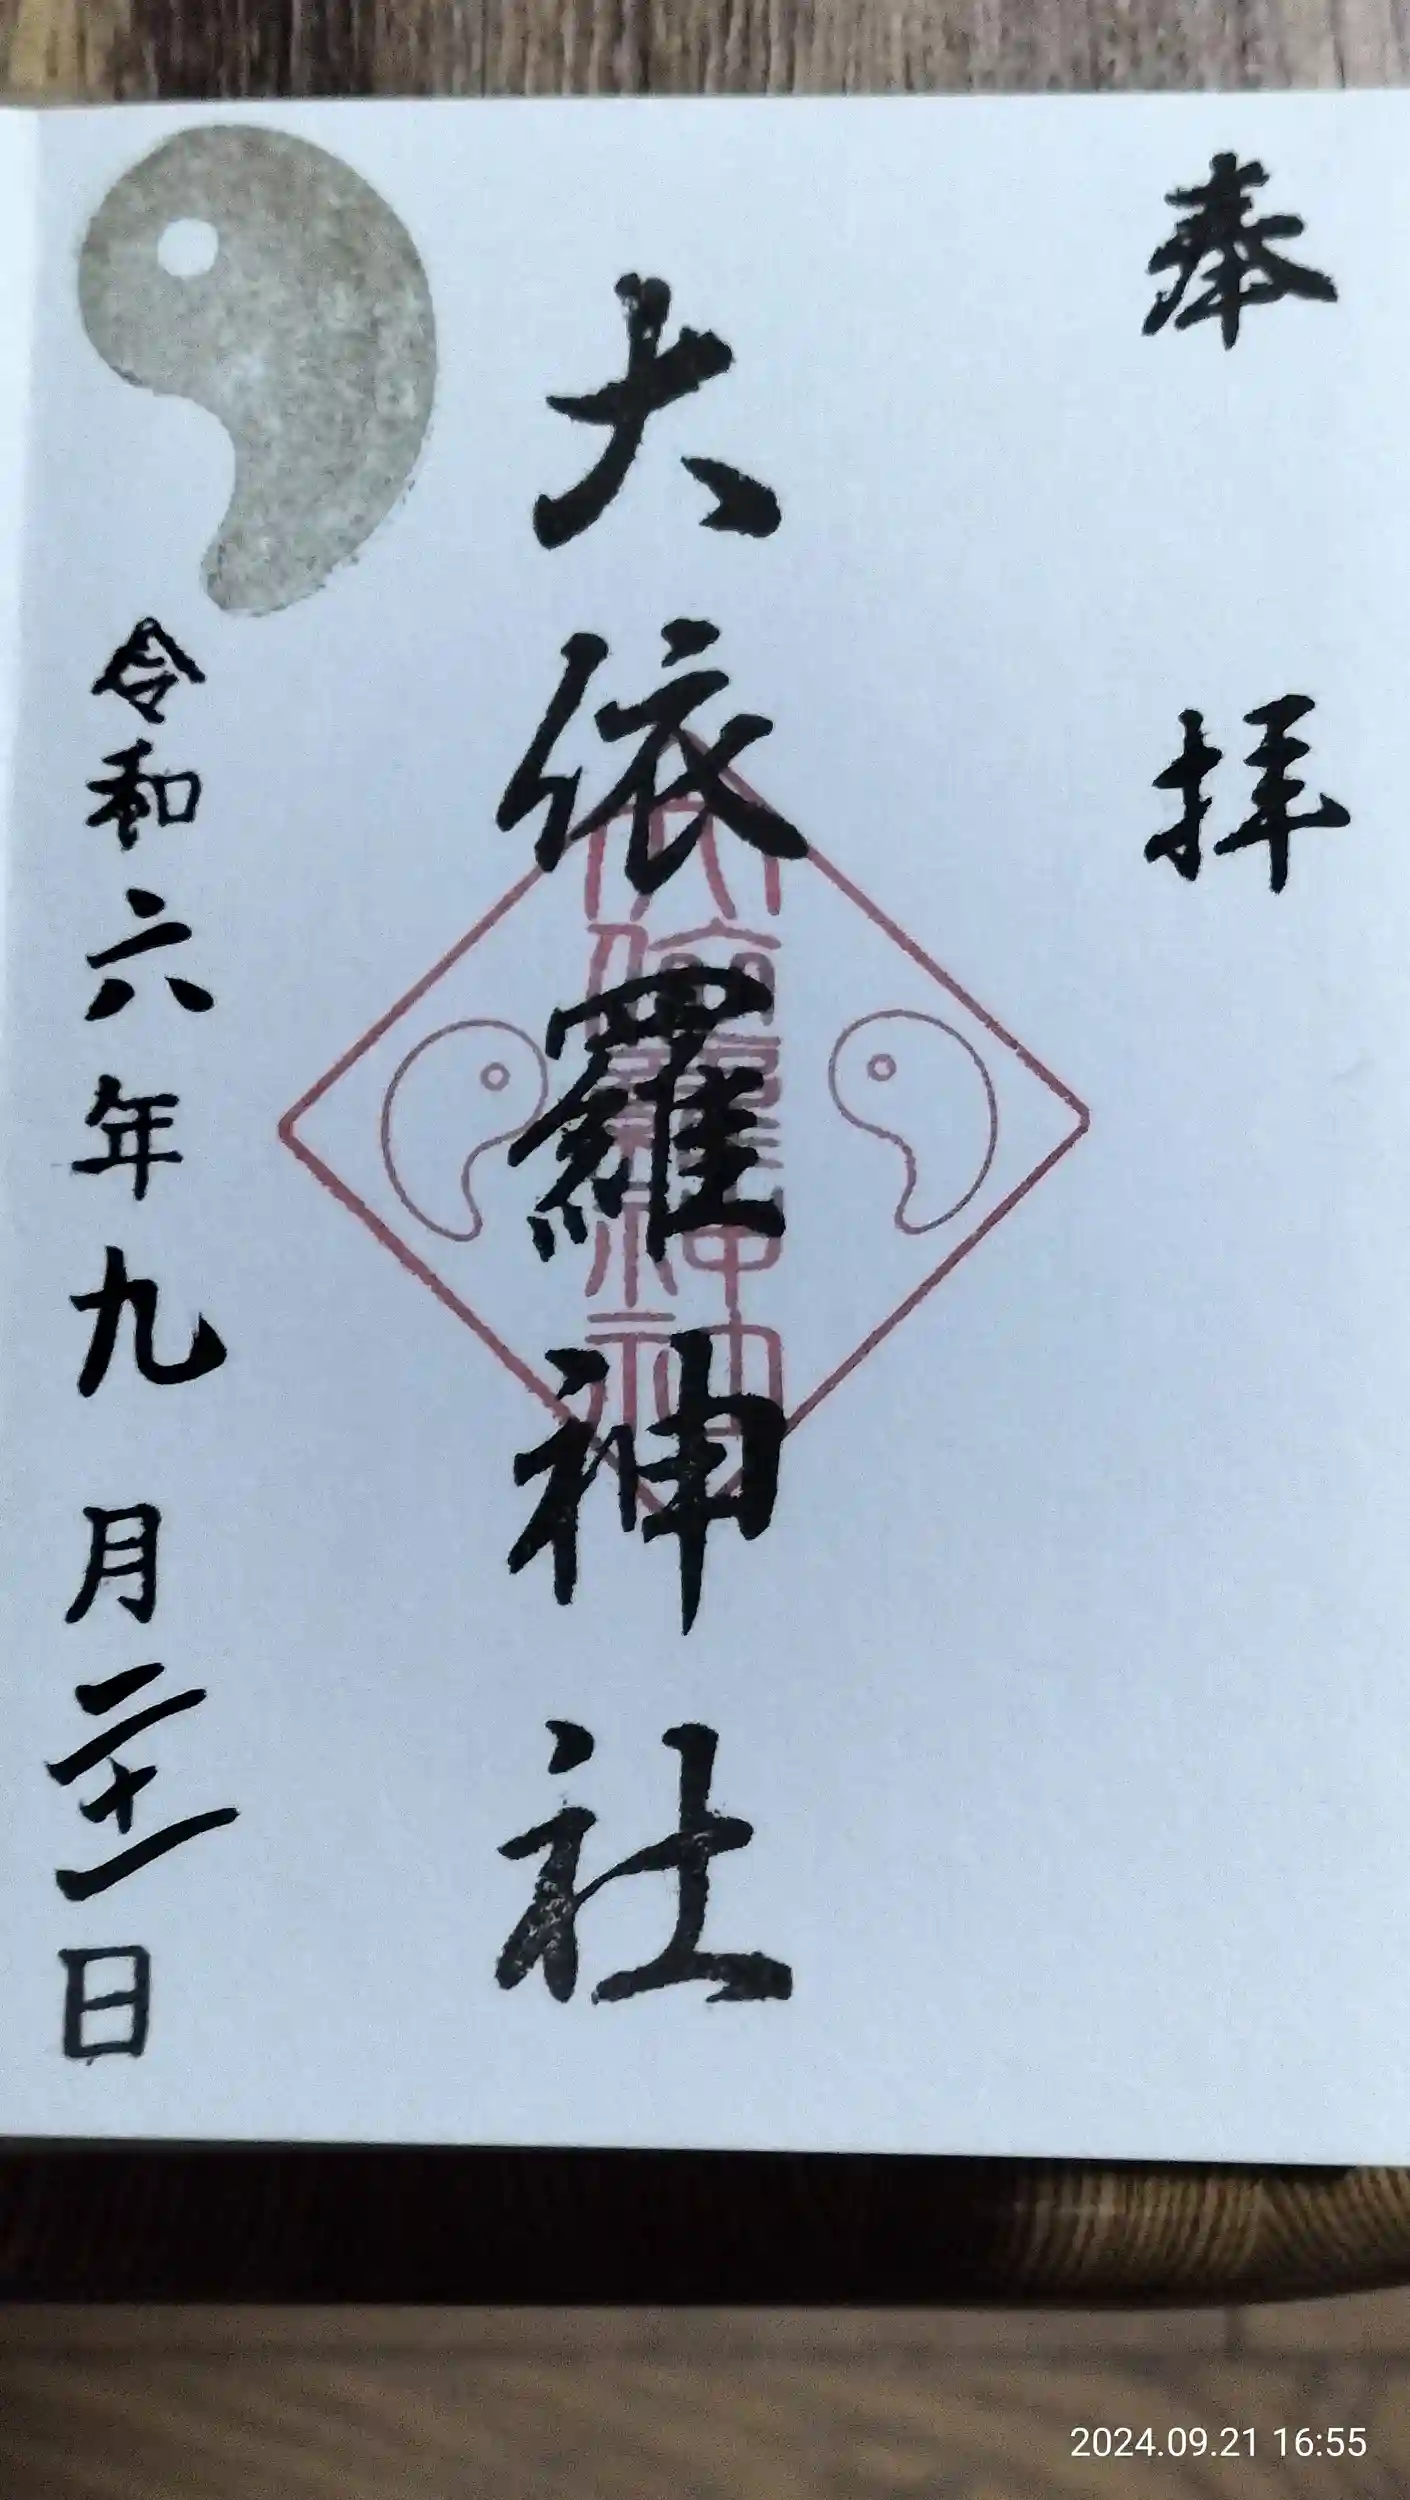 奉拝
大依羅神社
令和六年九月二十一日
2024.09.21 16:55